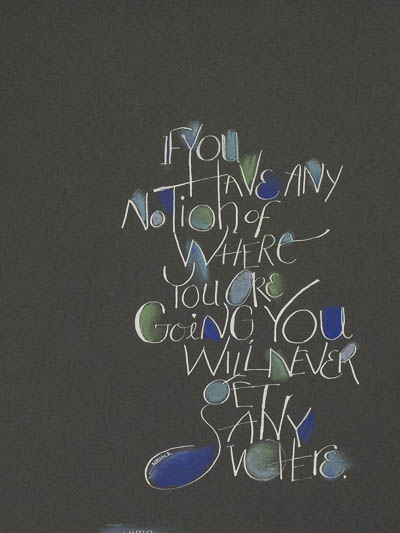 IF YOU
HAVE ANY
NOTION OF
WHERE
YOU ARE
GOING, YOU
WILL NEVER
GET
ANY
WHERE.